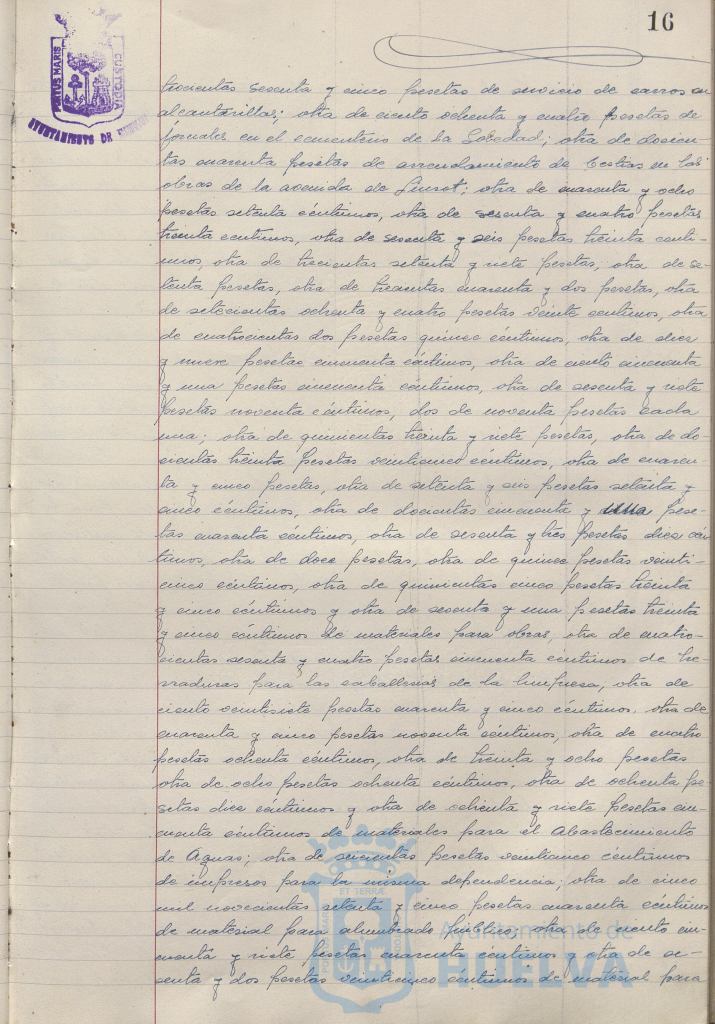 16
PORTUS MARIS
CUSTODIA
AYUNTAMIENTO DE
trocientas sesenta y cinco pesetas de servicio de carros en
alcantarillas; otra de ciento ochenta y cuatro pesetas de
jornales en el cementerio de la Soledad; otra de doscien-
tas cuarenta pesetas de arrendamiento de bestias en las
obras de la avenida de ; otra de cuarenta y ocho
pesetas setenta céntimos, otra de sesenta y cuatro pesetas
treinta centimos, otra de sesenta y seis pesetas treinta centi-
mos, otra de trecientas setenta y siete pesetas, otra de se-
tenta pesetas, otra de trecientas cuarenta y dos pesetas, otra
de setecientas ochenta y cuatro pesetas veinte centimos, otra
de cuatrocientas dos pesetas quince céntimos, otra de diez
y nueve pesetas cincuenta céntimos, otra de ciento cincuenta
y una pesetas cincuenta céntimos, otra de sesenta y siete
pesetas noventa céntimos, dos de noventa pesetas cada
una; otra de quinientas treinta y siete pesetas, otra de do-
cientas treinta pesetas veinticinco céntimos, otra de cuaren-
ta y cinco pesetas, otra de setenta y seis pesetas setenta y
cinco céntimos, otra de docientas cincuenta y una pese-
tas cuarenta céntimos, otra de sesenta y tres pesetas diez cén-
timos, otra de doce pesetas, otra de quince pesetas veinti-
cinco céntimos, otra de quinientas cinco pesetas treinta
y cinco céntimos y otra de sesenta y una pesetas treinta
y cinco céntimos de materiales para obras, otra de cuatro-
cientas sesenta y cuatro pesetas cincuenta céntimos de he-
rraduras para las caballerias de la limpieza, otra de
ciento veintisiete pesetas cuarenta y cinco céntimos, otra de
cuarenta y cinco pesetas noventa céntimos, otra de cuatro
pesetas ochenta céntimos, otra de treinta y ocho pesetas
otra de ocho pesetas ochenta céntimos, otra de ochenta pe-
setas diez céntimos y otra de ochenta y siete pesetas cin-
cuenta céntimos de materiales para el Abastecimiento
de Aguas; otra de seiscientas pesetas veinticinco céntimos
de impresos para la misma dependencia; otra de cinco
mil novecientas setenta y cinco pesetas cuarenta centimos
de material para alumbrado público, otra de ciento cin-
cuenta y siete pesetas cuarenta céntimos y otra de se-
senta y dos pesetas veinticinco céntimos de material para
Ayuntamiento de
HUELVA